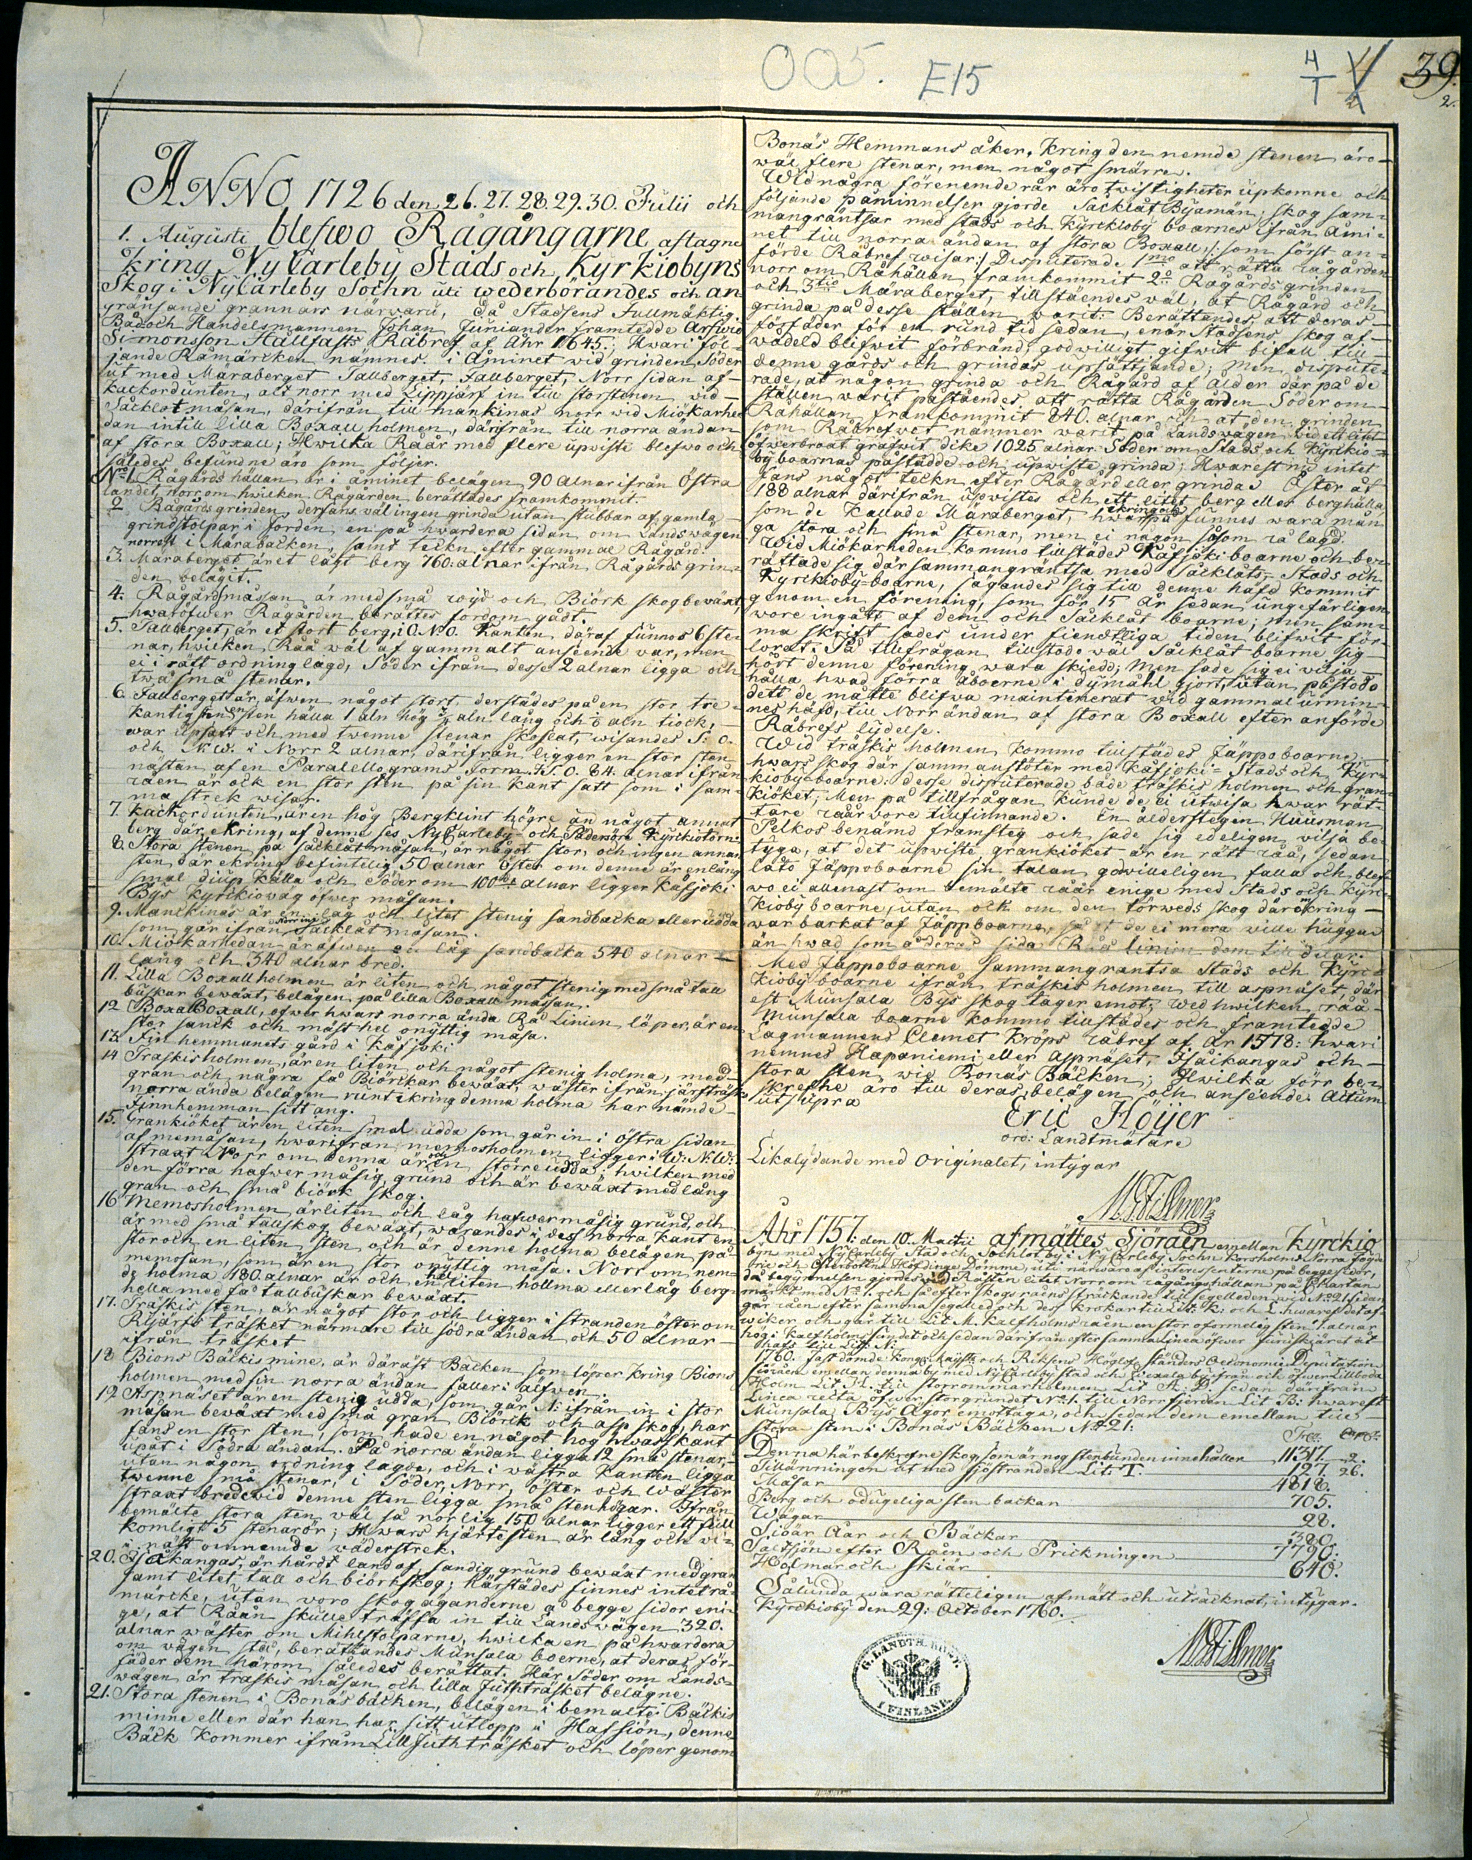 005.
E15
4
1
39.
2.
ANNO 1726 den 26. 27. 28. 29. 30. Julii och
1. Augusti blefwo Rågångarne aftagne
kring NyCarleby Stads och Kyrkiobyns
Skog i NyCarleby Sochn uti wederbörandes och an
gränsande grannars närwaru, då Stadsens Fullmäktig.
Råd och Handelsmannen Johan Juniander framtedde Arfwid
Simonsson Hällfasts Råbref af Åhr 1645; Hwari föl-
jande Råmärcken nämnes. i Åminet wid grinden, Söder
ut med Märaberget Tallberget, Fallberget, Norr sidan af
kackordunten, alt norr med Lippjärf in till storstenen wid
Såcklot måsan, därifrån till mankinas norr wid Miökarhe
dan intill lilla Boxall holmen, därifrån till norra ändan
af stora Boxall; Hwilka Råår med flere upwiste blefwo och
således befundne äro som följer.
No 1. Rågårds hällan är i åminet belägen 90 alnar ifrån Östra
landet, norr om hwilken Rågården berättades framkommit.
2. Rågårds grinden, der fans wäl ingen grinda utan stubbar af gamla
grindstolpar i jorden en på hwardera sidan om Landswägen
norrest i Märabacken, samt tecken efter gammal Rågård.
3. Märaberget är et lågt berg 760. alnar ifrån Rågårds grin-
den belägit.
4. Rågårdsmåsan är med små wijd och Biörk skog bewäxt,
hwaröfwer Rågården berättes fordom gådt.
5. Tallberget, är et stort berg, i O. N. O. kanten däraf funnos 6 ste-
nar, hwilken Råå wäl af gammalt anseende war, men
ei i rätt ordning lagd, Söder ifrån desse 2 alnar ligga och
twå små stenar.
6. Fallberget är äfwen något stort, derstädes på en stor tre-
kantig sten hälla 1 aln hög
war upsatt och med twenne stenar skolat, wisandes S: O.
och N: W. i Norr 2 alnar därifrån ligger en stor sten
nästan af en Paralellograms form. S. O. 84. alnar ifrån
råen är ock en stor sten på sin kant satt som i sam-
ma strek wisar.
7. kackordunten, är en hög Bergklint högre än något annat
berg där ekring, af denne ses NyCarleby och Pedersöre Kyrckiotorn.
8. Stora stenen på Såcklåt måsan, är något stor, och ingen annan
sten där ekring befintelig. 50 alnar Öster om denne är en lång
smal diup källa och Söder om 100de alnar ligger Kåfjoki
Bys kyrkiowäg öfwer måsan.
9. Manckinas är en låg och litet stenig sandbacka eller udda
som går ifrån Norr in i Såcklåt måsan.
10. Miökarhedan är äfwen en låg sandbacka 540 alnar
lång och 340 alnar bred.
11. Lilla Boxall holmen är liten och något stenig med små tall
buskar bewäxt, belägen på lilla Boxall måsan.
12. Boxall, öfwer hwars norra ända Rå Linien löper, är en
stor sanck och mäst hel onyttig måsa.
13. Finhemmanets gård i Kåfjoki
14. Träskis holmen, är en liten och något stenig holma, med
gran och några få Biörckar bewäxt, wäster ifrån järfträsk
norra ända belägen runt ekring denna holma har nämde
Finnhemman sitt äng.
15. Grankiöket är en liten smal udda som går in i östra sidan
af memåsan, hwarifrån memosholmen ligger i W: N. W:
straxt Norr om denna är en större udda, hwilken med
den förra hafwer måsig grund och är bewäxt med lång
gran och små biörk skog.
16. Memosholmen är liten och låg hafwer måsig grund, och
är med små tallskog bewäxt, warandes i des norra kant en
stor och en liten sten och är denne holma belägen på
memosan, som är en stor onyttig måsa. Norr om nem-
de holma 180. alnar är och en hel liten hollma eller låg berg-
hella med få tallbuskar bewäxt.
17. Träskis sten, är något stor och ligger i stranden öster om
Rijärfs träsket närmare till södra ändan och 50 alnar
ifrån träsket
18. Bions Bäckis mine, är däräst Bäcken som löper kring Bions
holmen med sin norra ändan faller i älfwen.
19. Aspnäset är en stenig udda, som går N: ifrån in i stor
måsan bewäxt med små gran, Biörck och asp skog, här
fans en stor sten, som hade en något hög hwass kant
upåt i Södra ändan. På norra ändan ligga 12 små stenar
utan någon ordning lagde, och i wästra kanten ligga
twenne små stenar, i Söder, Norr, Öster och Wäster
straxt bredewid denne sten ligga små stenhögar. Ifrån
bemälte stora sten wäl så norlig 150 alnar ligger ett full-
komligt 5 stenarör; Hwars hjärtesten är lång och wi-
i rätt omnemde wäderstrek.
20. Isåkangas, är hårdt land af sandig grund bewäxt med gran
samt litet tall och biörkskog; Härstädes finnes intet rå-
märcke, utan woro skog äganderne å begge sidor eni-
ge, at Råån skulle träffa in till Landswägen 320.
alnar wäster om Mihlstolparne, hwilka en på hwardera
om wägen stå, berättandes Munsala boerne, at deras för-
fäder dem härom således berättat. Här Söder om Lands-
wägen är träskis måsan och lilla Juthträsket belägne.
21. Stora stenen i Bonäsbäcken, belägen i bemälte Bäckis
minne eller där han har sitt utlopp i Hafsiön, denne
Bäck kommer ifrån Lill Juthträsket och löper genom
Bonäs Hemmans åker, kring den nemde stenen äro
wäl flere stenar, men något smärre.
Wid några förenemde rår äro twistigheter upkomne och
följande påminnelser gjorde Såcklåt Byamän, skog sam-
mangräntsar med stads och Kyrckloby boarnes ifrån åmi-
net till norra ändan af stora Boxall, som först an-
förde Råbref wisar: Disputerade 1mo att rätta rågården
norr om Råhällan framkommit 2do Rågårdsgrinden
och 3tio Märaberget, tillståendes wäl, at Rågård och
grinda på desse ställen warit: Berättandes att deras
förfäder för en rund tid sedan, enär Stadsens skog af
wådeld blifwit förbränd, godwilligt gifwit bifall till
denne gårds och grindas upsättjande; Men dispute-
rade, at någon grinda och Rågård af ålder där på de
ställen warit påståendes, att rätta Rågården Söder om
Råhällan framkommit 840. alnar och at den grinden
som Råbrefwet nämner warit på Landswägen wid ett litet
öfwerbroat gräfwit dike 1025 alnar Söder om Stads och Kyrckio-
by boarnas påstådde och upwiste grinda; Hwarest nu intet
fans något teckn efter Rågård eller grinda. Öster åt
188 alnar därifrån upwistes och ett litet berg eller berghälla
som de kallade Märaberget, hwarpå funnes wara mån
ga stora och små stenar, men ei någon såsom rå lagd.
Wid Miökarheden kommo tillstädes Kåfjoki boarne och be-
rättade sig där sammangräntsa med Såcklåts- Stads och
Kyrckloby-boarne, sägandes sig till denne häfd kommit
genom en förening, som för 15 år sedan ungefärligen
wore ingått af dem och Såcklåt boarne; men sam-
ma skrift sades under fientliga tiden blifwit för-
lorat. På tillfrågan tillstodo wäl Såcklåt boarne sig
hört denne förening wara skiedd; Men sade sig ei wilja
hålla hwad förra åboerne i dymåhl gjort, utan påstodo
dett de måtte blifwa maintenerat wid gammal urmin-
nes häfd, till Norr ändan af stora Boxall efter anförde
Råbrefs lydelse.
Wid träskis holmen kommo tillstädes Jäppoboarne
hwars skog där sammanstöter med Kåfjoki- Stads och Kyr-
kioby-boarne. desse disputerade både träskis holmen och gran-
kiöket, Men på tillfrågan kunde de ei utwisa hwar rät-
tare råår wore tillfinnande. En ålderstegen Huusman
Pelkos benämd framsteg och sade sig edeligen wilja be-
tyga, at det upwiste grankiöket är en rätt råå, sedan
läto Jäppoboarne sin talan godwilleligen falla och blef
wo ei allenast om bemälte råår enige med Stads och Kyrc-
kioby boarne, utan ock om den törweds skog där ekring
war barkat af Jäppboarne, så at de ei mera wille huggas
än hwad som å deras sida Råå linien dem tilldelar.
Med Jäppoboarne sammangräntsa Stads och Kyrc-
kioby boarne ifrån träskis holmen till aspnäset, där
est Munsala Bys skog tager emot; wid hwilken råå
Munsala boarne kommo tillstädes och framtedde
Lagmannens Clemet Kröps råbref af År 1578: hwari
nemnes Hapaniemi, eller Aspnäset, Isåikangas och
stora sten wid Bonäs Bäcken; Hwilka förr be-
skrefne äro till deras belägen och anseende. Actum
ut supra
Eric Höijer
ord: Landtmätare
Likalydande med Originalet, intygar
Åhr 1757: den 10. Martii afmättes Sjöråen emellan Kyrckio
byn med NyCarleby Stad och Sochlot by i NyCarleby Sochn Korsholms Norra fögde
rie och Österbottens Höfdinge Dömme, uti närwaro af intressenterna på begge sidor,
då begynnelsen gjordes wid Råsten litet Norr om rågångshällan på Chartan
märkt med No. 1. och så efter skogs rådns sträckande till segelleden wid No 21 sidan
går råen efter samma segelled och des krokar till Lit: K: och L: hwarest det af
wiker och går till Lit M. kalfholms råen en stor oformelig sten
hög i kalfholms sundet och sedan därifrån efter samma linea öfwer
hafs till Litt: N:
1760. fastdömde Kongl: Maij:ts och Riksens Höglofl. Ständers Oeconomie Deputation
sjöråen emellan denna by med NyCarleby stad och Soklot by ifrån och öfwer Lillboda
Holm Lit: till storrommarholmen Lit A: sedan därifrån
Linea recta öfwer storgrundet No: 1. till Norrfjerden Lit B: hwarest
Munsala Bys Ägor emottaga, och sedan dem emellan till
stora sten i Bonäs Bäcken No 21:
Denna här beskrefne skog, som är nog stenbunden innehåller 11317. 2.
Tillänningen ut med sjöstranden Lit: T: 127. 26.
Måsar 4818.
Berg och oduglige sten backar 705.
Wägar 28.
Siöar Åar och Bäckar 380.
Saltsjön efter Råen och Prickningen 7790.
Holmar och skiär 640.
Sålunda wara rätteligen afmätt och uträcknat, intygar.
Kyrckioby den 29: October 1760.
G. LANDTM. CONT.
I FINLAND.